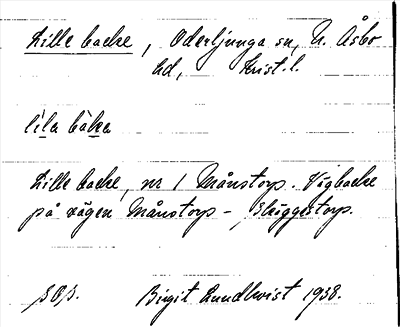 Lille backe, Oderljunga sn, N. Åsbo
hd, Krist. l.
lila baka
Lille backe, nr 1 Månstorp. Vägbacke
på vägen Månstorp – Skäggestorp.
Birgit Lundkvist 1938.